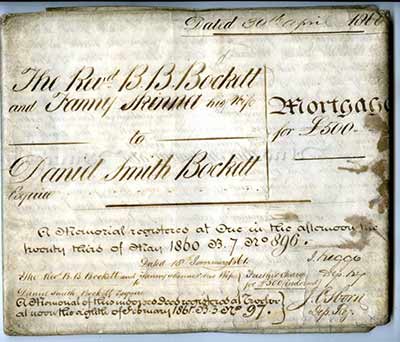 Dated 30th April 1860
The Revd. B. B. Bockett
and Fanny Skinner his Wife
to
Daniel Smith Bockett
Esquire
Mortgage
for £500.
A Memorial registered at One in the afternoon the
twenty third of May 1860 B. 7. No 896.
Dated 18th January 1861.
The Rev. B. B. Bockett and Fanny Skinner his Wife
to
Daniel Smith Bockett Esquire
Further charge
for £500 (indorsed)
Dep. Reg
A Memorial of this indorsed deed registered at
at noon the eighth of February 1861 B. 3 No 97.
Dep. Reg.